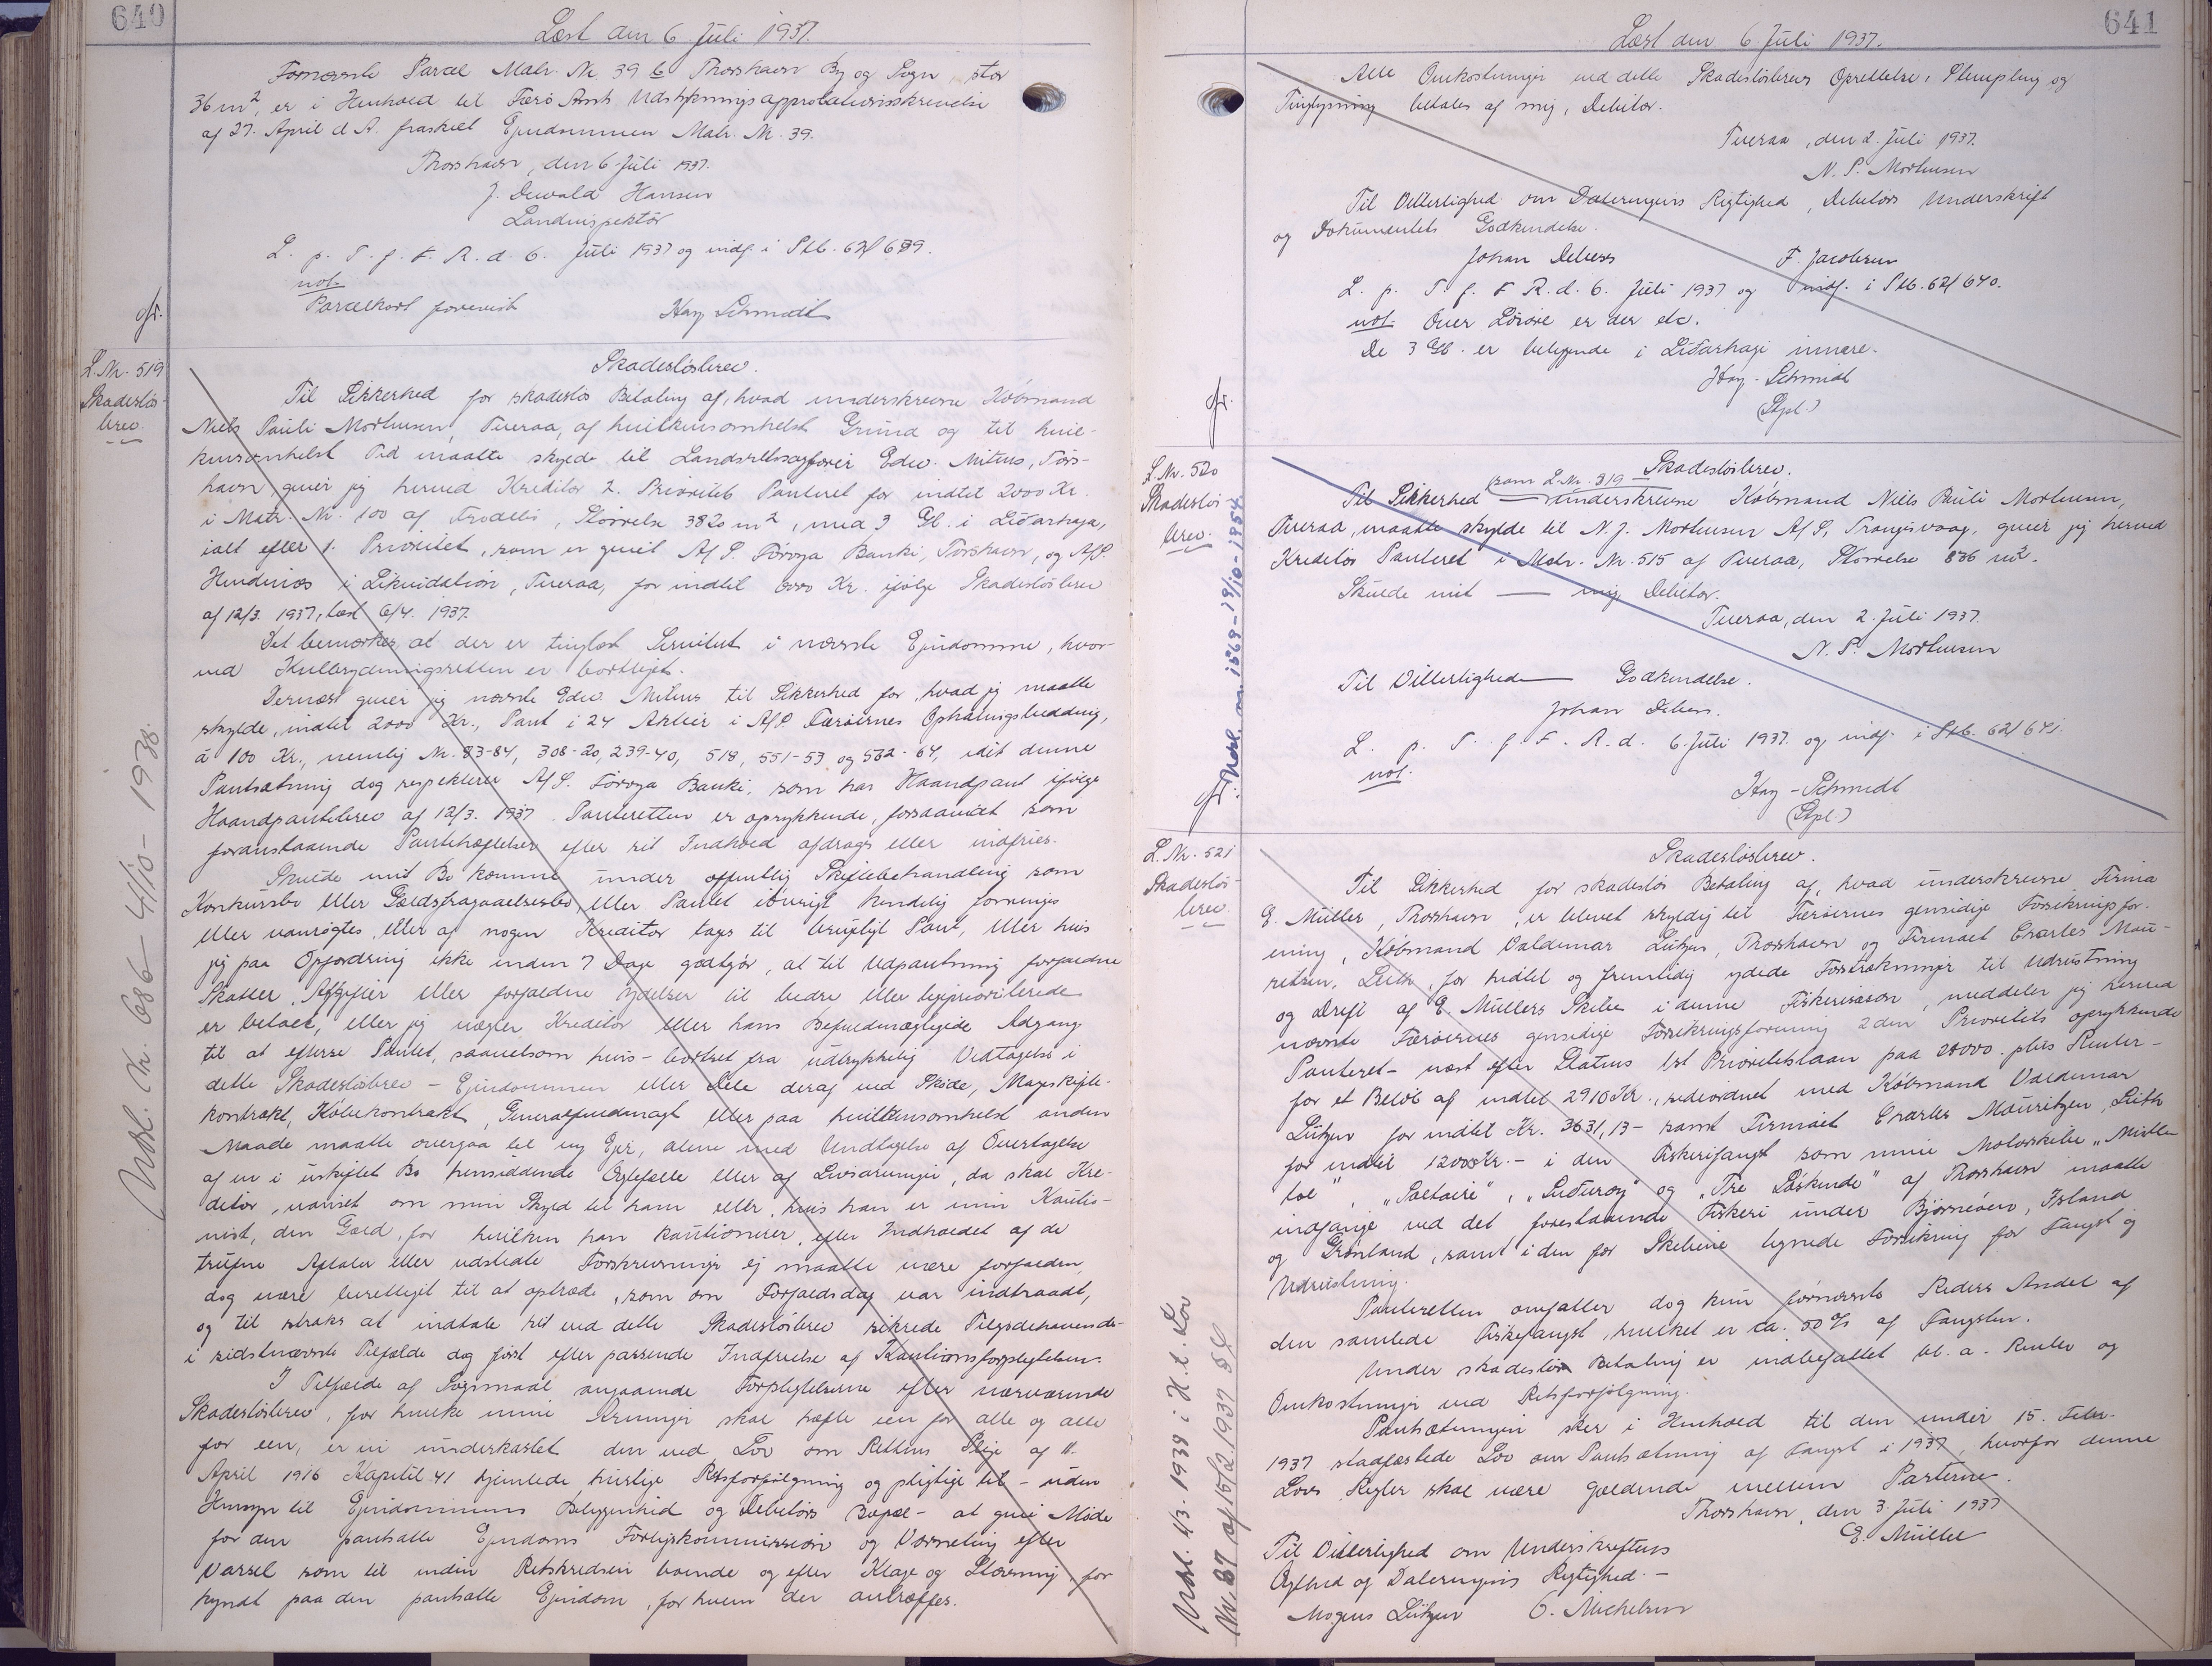 640
Læst den 6. Juli 1937.
Fornævnte Parcel Matr. Nr. 39 b Thorshavn By og Sogn, stor
36 m², er i Henhold til Færø Amts Udstykningsapprobationsskrivelse
af 27. April d. A. fraskilt Ejendommen Matr. Nr. 39.
Thorshavn, den 6. Juli 1937.
J. Dewald Hansen
Landinspektör
L. p. T. f. F. R. d. 6. Juli 1937 og indf. i Skb. 62/639.
not.
Parcelkort forevist Hay Schmidt
L. Nr. 519
Skadeslös-
brev.
Skadeslösbrev.
Til Sikkerhed for skadeslös Betaling af, hvad underskrevne Köbmand
Niels Pauli Morthensen, Tveraa, af hvilkensomhelst Grund og til hvil-
kensomhelst Tid maatte skylde til Landsretssagförer Edw. Mitens, Tórs-
havn, giver jeg herved Kreditor 2. Prioritets Panteret for indtil 2000 Kr.
i Matr. Nr. 100 af Frodebö, Störrelse 3820 m², med 3 Gl. i Liðarhaga,
ialt efter 1. Prioritet, som er givet A/S. Föroya Banki, Tórshavn, og A/S.
i Likvidation, Tveraa, for indtil 8000 Kr. ifölge Skadeslösbrev
af 12/3. 1937, læst 6/4. 1937.
Det bemærkes, at der er tinglæst Servitut i nævnte Ejendomme, hvor-
ved Kulbrydningsretten er bortlejet.
Dernæst giver jeg nævnte Edw. Mitens til Sikkerhed for, hvad jeg maatte
skylde, indtil 2000 Kr., Pant i 24 Aktier i A/S. Færöernes Ophalingsbedding,
à 100 Kr., nemlig Nr. 83-84, 308-20, 239-40, 518, 551-53 og 562-64, idet denne
Pantsætning dog respekterer A/S. Föroya Banki, som har Haandpant ifölge
Haandpantebrev af 12/3. 1937. Panteretten er oprykkende, forsaavidt som
foranstaaende Pantehæftelser efter sit Indhold afdrages eller indfries.
Skulde mit Bo komme under offentlig Skiftebehandling som
Konkursbo eller Gældsfragaaelsesbo, eller Pantet iövrigt kendelig forringes
eller vanrögtes, eller af nogen Kreditor tages til brugligt Pant, eller hvis
jeg paa Opfordring ikke inden 7 Dage godtgör, at til Udpantning forfaldne
Skatter, Afgifter eller forfaldne Ydelser til bedre eller ligeprioriterede
er betalt, eller jeg nægter Kreditor eller hans Befuldmægtigede Adgang
til at efterse Pantet, saavelsom hvis - bortset fra udtrykkelig Vedtagelse i
dette Skadeslösbrev - Ejendommen eller Dele deraf ved Sköde, Mageskifte-
kontrakt, Köbekontrakt, Generalfuldmagt eller paa hvilkensomhelst anden
Maade maatte overgaa til ny Ejer, alene med Undtagelse af Overtagelse
af en i uskiftet Bo hensiddende Ægtefælle eller af Livsarvinger, da skal Kre-
ditor, uanset om min Skyld til ham eller, hvis han er min Kautio-
nist, den Gæld, for hvilken han kautionerer, efter Indholdet af de
trufne Aftaler eller udstedte Forskrivninger ej maatte være forfalden,
dog være berettiget til at optræde, som om Forfaldsdag var indtraadt,
og til straks at indtale sit ved dette Skadeslösbrev sikrede Tilgodehavende -
i sidstnævnte Tilfælde dog först efter passende Indfrielse af Kautionsforpligtelsen.
I Tilfælde af Sögsmaal angaaende Forpligtelserne efter nærværende
Skadeslösbrev, for hvilke mine Arvinger skal hæfte een for alle og alle
for een, er vi underkastet den ved Lov om Rettens Pleje af 11.
April 1916 Kapitel 41 hjemlede hurtige Retsforfölgning og pligtige til - uden
Hensyn til Ejendommens Beliggenhed og Debitors Bopæl - at give Möde
for den pantsatte Ejendoms Forligskommission og Værneting efter
Varsel som til inden Retskredsen boende og efter Klage og Stævning, for-
kyndt paa den pantsatte Ejendom, for hvem der antræffes.
Udsl. Nr. 686 - 4/10 - 1938.
641
Læst den 6. Juli 1937.
Alle Omkostninger ved dette Skadeslösbrevs Oprettelse, Stempling og
Tinglysning betales af mig, Debitor.
Tveraa, den 2. Juli 1937.
N. P. Morthensen
Til Vitterlighed om Dateringens Rigtighed, Debitors Underskrift
og Dokumentets Godkendelse.
Johan Debess F. Jacobsen
L. p. T. f. F. R. d. 6. Juli 1937 og indf. i Skb. 62/640.
not. Over er der etc.
De 3 Gl. er beliggende i Liðarhagi innara.
Hay-Schmidt
(Stpl.)
L. Nr. 520
Skadeslös-
brev.
Skadeslösbrev.
Til Sikkerhed (som L. Nr. 319 — underskrevne Köbmand Niels Pauli Morthensen,
Tveraa, maatte skylde til N. J. Mortensen A/S, Trangisvaag, giver jeg herved
Kreditor Panteret i Matr. Nr. 515 af Tveraa, Störrelse 836 m².
Skulde mit — mig, Debitor.
Tveraa, den 2. Juli 1937.
N. P. Morthensen
Til Vitterlighed — Godkendelse.
Johan Debess.
L. p. T. f. F. R. d. 6. Juli 1937 og indf. i Skb. 62/641.
not.
Hay-Schmidt
(Stpl.)
L. Nr. 521
Skadeslös-
brev.
Skadeslösbrev.
Til Sikkerhed for skadeslös Betaling af, hvad underskrevne Firma
E. Müller, Thorshavn, er blevet skyldig til Færöernes gensidige Forsikringsfor-
ening, Köbmand Valdemar Lützen, Thorshavn og Firmaet Charles Mau-
ritzen, Leith, for indtil og fremtidig ydede Forstrækninger til Udrustning
og Drift af E. Müllers Skibe i denne Fiskerisæson, meddeler jeg herved
nævnte Færöernes gensidige Forsikringsforening 2den Prioritets oprykkende
Panteret - næst efter Statens 1st Prioritetslaan paa 28000.- plus Renter -
for et Belöb af indtil 2910 Kr., sideordnet med Köbmand Valdemar
Lützen for indtil Kr. 3631,13 - samt Firmaet Charles Mauritzen, Leith
for indtil 12000 Kr. - i den Fiskerifangst som mine Motorskibe "Mistle-
toe", "Solaire", "Suðuroy" og "Tre Söskende" af Thorshavn maatte
indfange ved det forestaaende Fiskeri under Björneöen, Island
og Grönland, samt i den for Skibene tegnede Forsikring for Fangst og
Udrustning.
Panteretten omfatter dog kun fornævnte Reders Andel af
den samlede Fiskefangst, hvilket er ca. 50 % af Fangsten.
Under skadeslös Betaling er indbefattet bl. a. Renter og
Omkostninger ved Retsforfölgning.
Pantsætningen sker i Henhold til den under 15. Febr.
1937 stadfæstede Lov om Pantsætning af Fangst i 1937, hvorfor denne
Lovs Regler skal være gældende mellem Parterne.
Thorshavn, den 3. Juli 1937
E. Müller
Til Vitterlighed om Underskriftens
Ægthed og Dateringens Rigtighed. -
Mogens Lützen O. Michelsen
Udsl. 4/3. 1939 i H. t. Lov
Nr. 87 af 15/2 1937 §